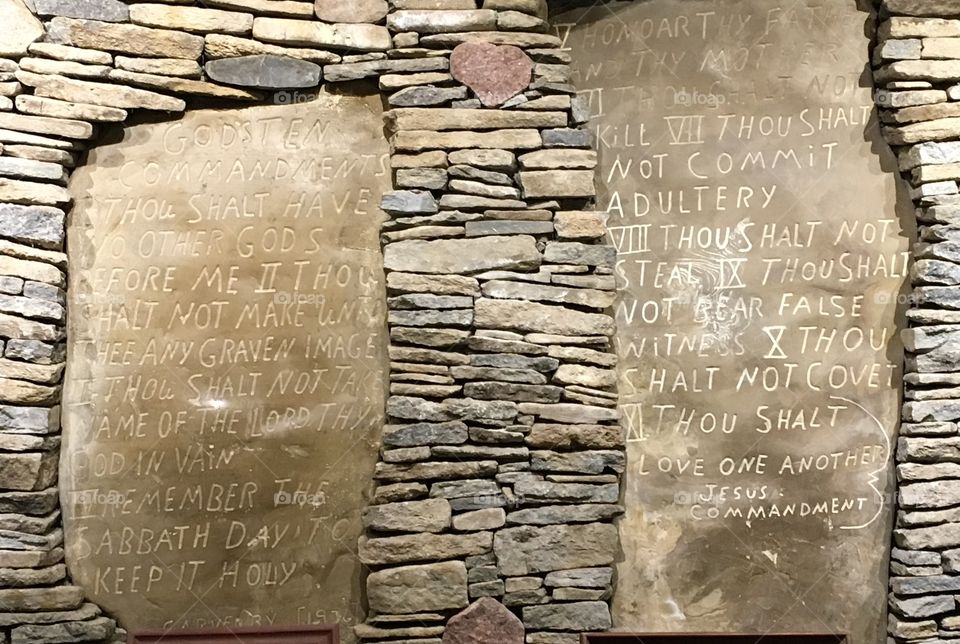 GODS TEN
COMMANDMENTS
THOU SHALT HAVE
NO OTHER GODS
BEFORE ME II THOU
SHALT NOT MAKE UNTO
THEE ANY GRAVEN IMAGE
THOU SHALT NOT TAKE
NAME OF THE LORD THY
GOD IN VAIN
IV REMEMBER THE
SABBATH DAY, TO
KEEP IT HOLY
V HONOR THY FATHER
AND THY MOTHER
VI THOU SHALT NOT
KILL VII THOU SHALT
NOT COMMIT
ADULTERY
VIII THOU SHALT NOT
STEAL IX THOU SHALT
NOT BEAR FALSE
WITNESS X THOU
SHALT NOT COVET
XI THOU SHALT
LOVE ONE ANOTHER
JESUS:
COMMANDMENT